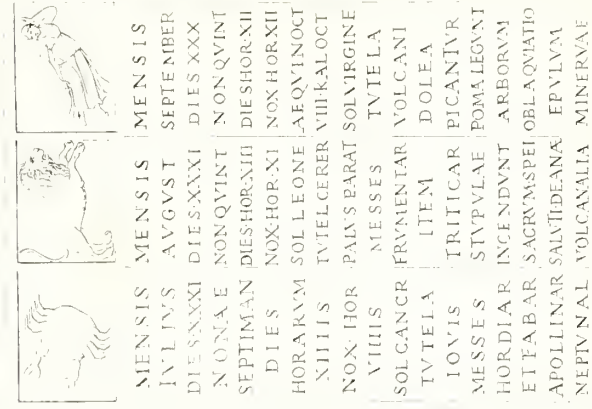 MENSIS
IVLIVS
DIES·XXXI
NONAE
SEPTIMAN
DIES
HORARVM
XIIIIS
NOX·HOR
VIIIIS
SOL CANCR
TVTELA
IOVIS
MESSES
HORDIAR
ET FABAR
APOLLINAR
NEPTVNAL
MENSIS
AVGVST
DIES·XXXI
NON QVINT
DIES·HOR·XIII
NOX·HOR·XI
SOL LEONE
TVTEL CERER
PALVS PARAT
MESSES
FRVMENTAR
ITEM
TRITICAR
STVPVLAE
INCENDVNT
SACRVM·SPEI
SALVTI·DEANAE
VOLCANALIA
MENSIS
SEPTEMBER
DIES XXX
NON QVINT
DIES HOR·XII
NOX HOR XII
AEQVINOCT
VIII KAL OCT
SOL VIRGINE
TVTELA
VOLCANI
DOLEA
PICANTVR
POMA LEGVNT
ARBORVM
OBLAQVIATIO
EPVLVM
MINERVAE